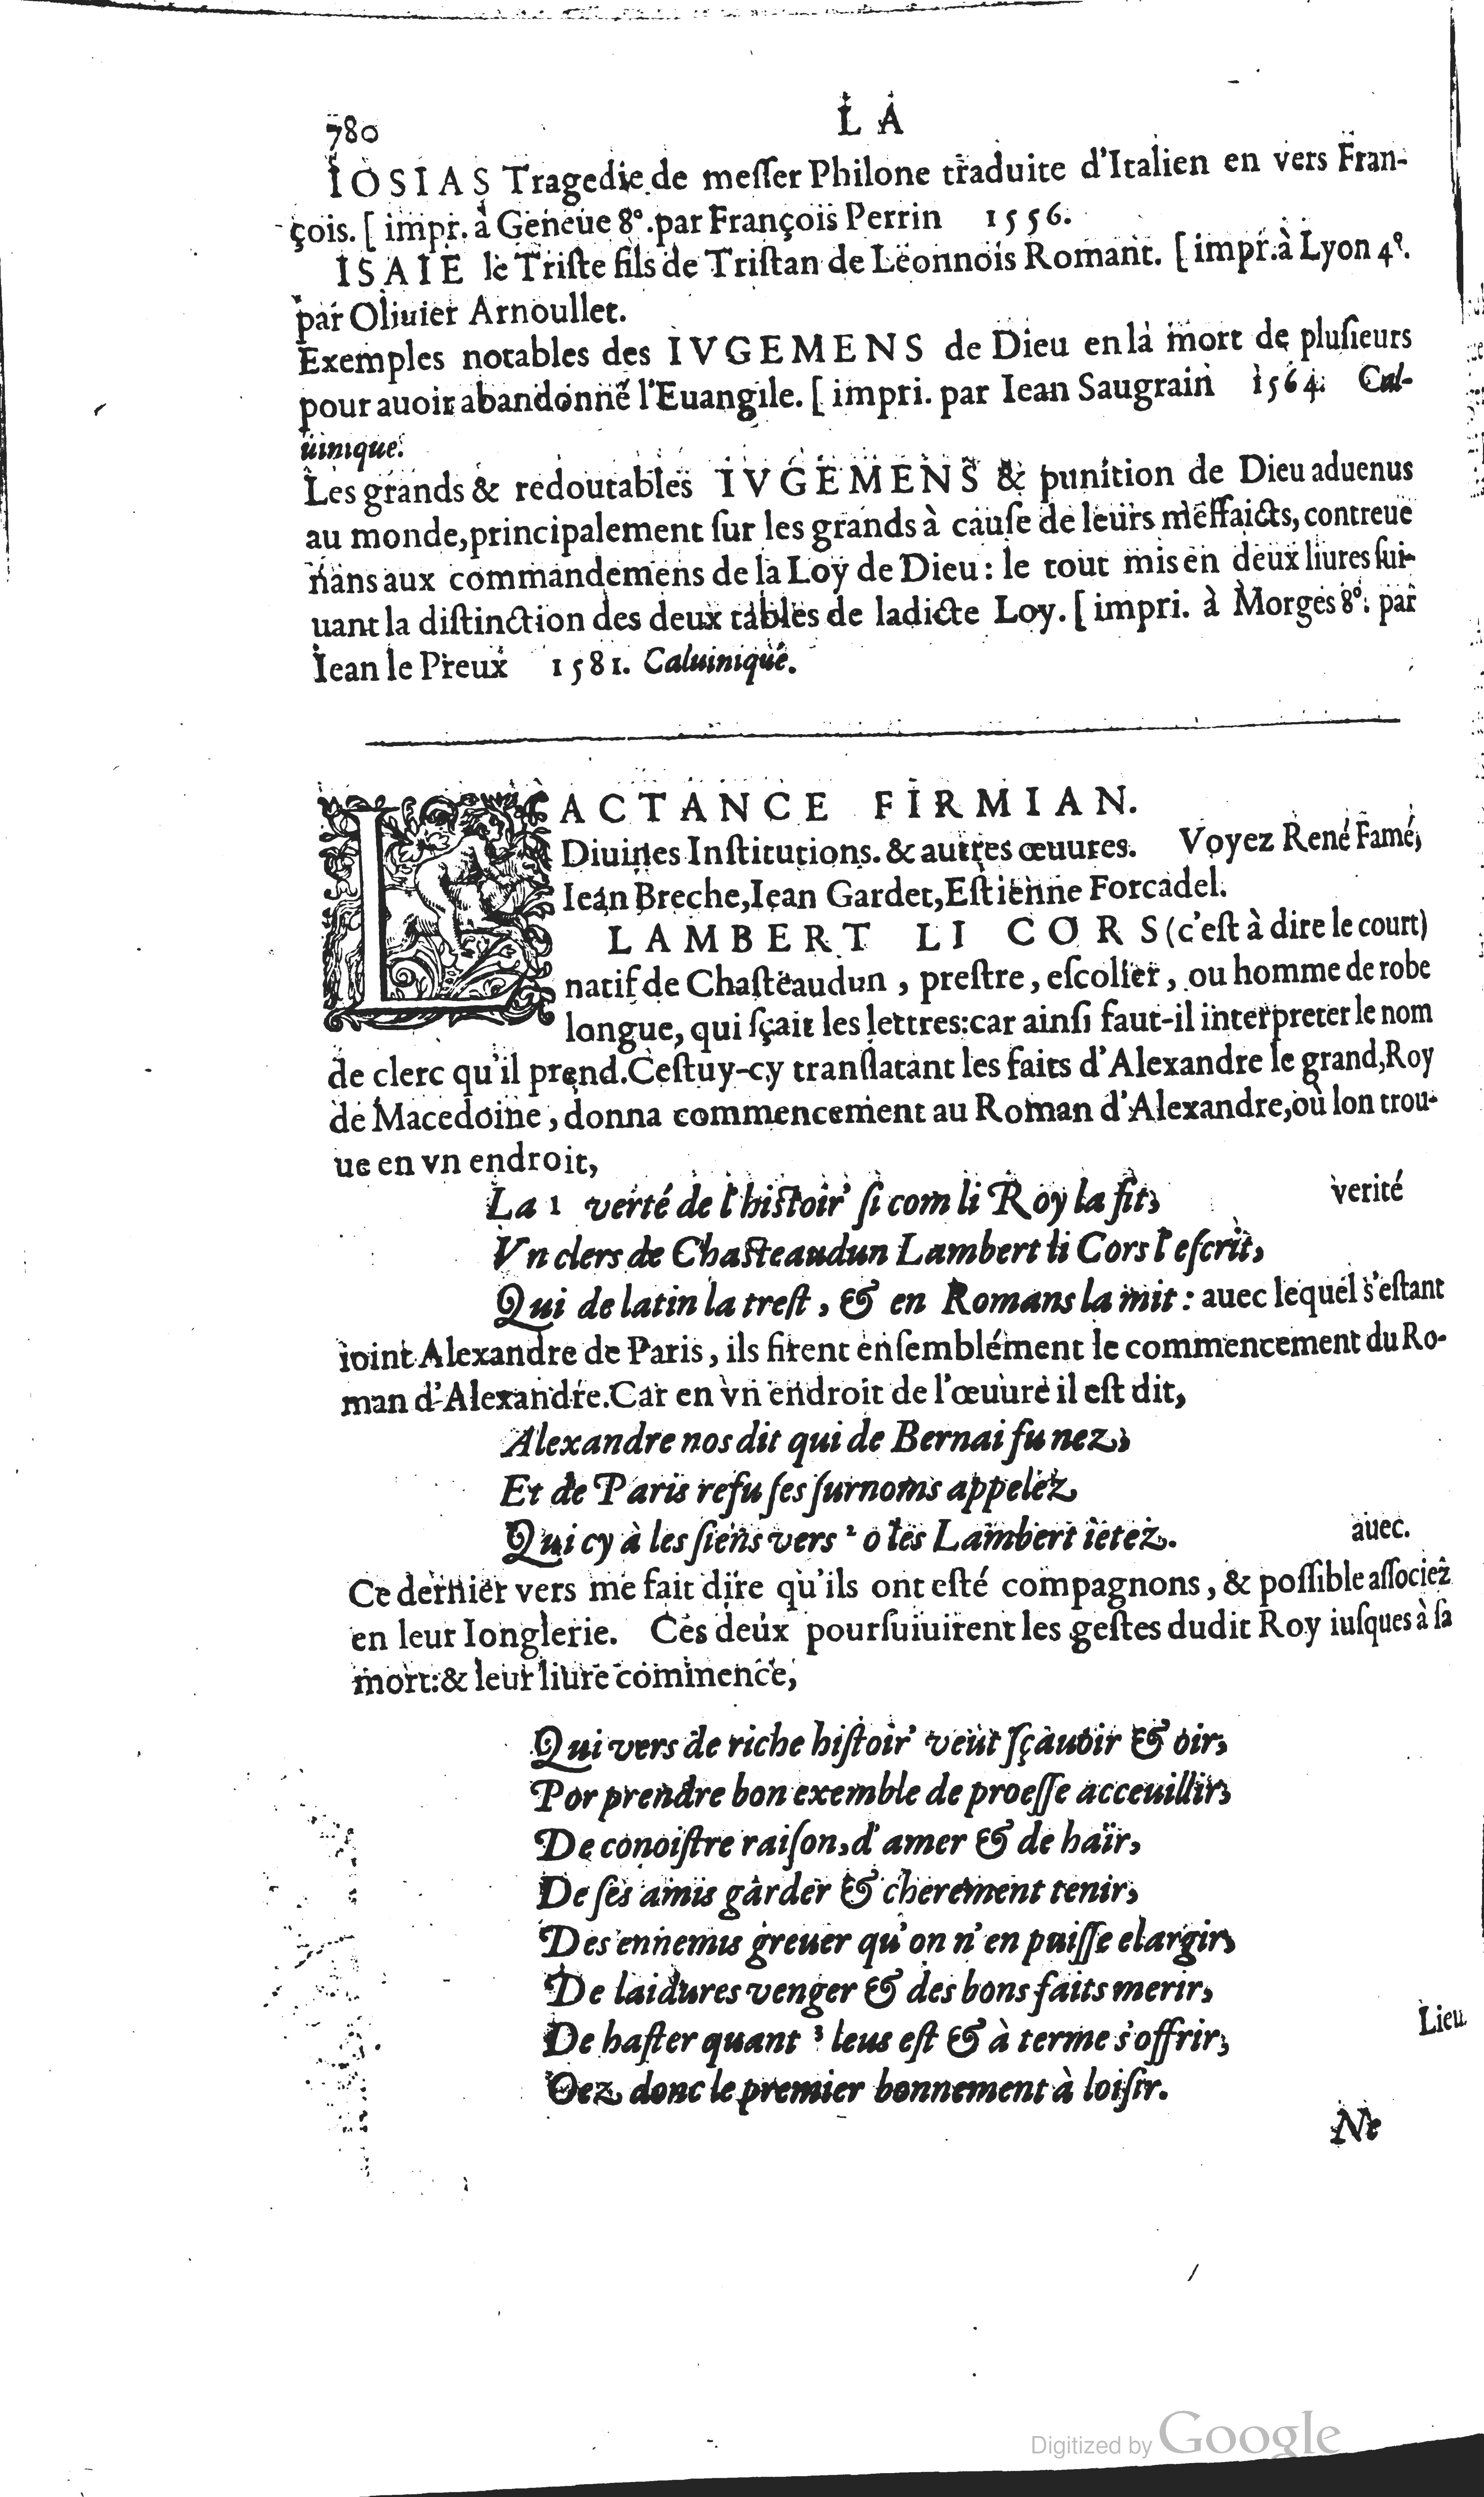 780
LA
IOSIAS Tragedie de meſſer Philone traduite d'Italien en vers Fran-
çois. [ impr. à Geneue 8°. par François Perrin 1556.
ISAIE le Triſte fils de Triſtan de Leonnois Romant. [ impr. à Lyon 4°.
par Oliuier Arnoullet.
Exemples notables des IVGEMENS de Dieu en la mort de pluſieurs
pour auoir abandonné l'Euangile. [ impri. par Iean Saugrain 1564. Cal-
uinique.
Les grands & redoutables IVGEMENS & punition de Dieu aduenus
au monde, principalement ſur les grands à cauſe de leurs meffaicts, contreue
nans aux commandemens de la Loy de Dieu: le tout mis en deux liures ſui-
uant la diſtinction des deux tables de ladicte Loy. [ impri. à Morges 8°. par
Iean le Preux 1581. Caluinique.
LACTANCE FIRMIAN.
Diuines Inſtitutions. & autres œuures. Voyez René Famé,
Iean Breche, Iean Gardet, Eſtienne Forcadel.
LAMBERT LI CORS (c'eſt à dire le court)
natif de Chaſteaudun, preſtre, eſcolier, ou homme de robe
longue, qui ſçait les lettres: car ainſi faut-il interpreter le nom
de clerc qu'il prend. Ceſtuy-cy tranſlatant les faits d'Alexandre le grand, Roy
de Macedoine, donna commencement au Roman d'Alexandre, où lon trou-
ue en vn endroit,
La 1 verté de l'hiſtoir' ſi com li Roy la fit, verité
Vn clers de Chaſteaudun Lambert li Cors l'eſcrit,
Qui de latin la treſt, & en Romans la mit: auec lequel s'eſtant
ioint Alexandre de Paris, ils firent enſemblément le commencement du Ro-
man d'Alexandre. Car en vn endroit de l'œuure il eſt dit,
Alexandre nos dit qui de Bernai fu nez,
Et de Paris refu ſes ſurnoms appelez
Qui cy à les ſiens vers 2 o les Lambert ietez. auec.
Ce dernier vers me fait dire qu'ils ont eſté compagnons, & poſſible aſſociez
en leur Ionglerie. Ces deux pourſuiuirent les geſtes dudit Roy iuſques à ſa
mort: & leur liure commence,
Qui vers de riche hiſtoir' veut ſçauoir & oir,
Por prendre bon exemble de proeſſe acceuillir,
De conoiſtre raiſon, d'amer & de haïr,
De ſes amis garder & cherement tenir,
Des ennemis greuer qu'on n'en puiſſe elargir,
De laidures venger & des bons faits merir,
De haſter quant 3 leus eſt & à terme s'offrir, Lieu
Oez donc le premier bonnement à loiſir.
Ne
Digitized by Google